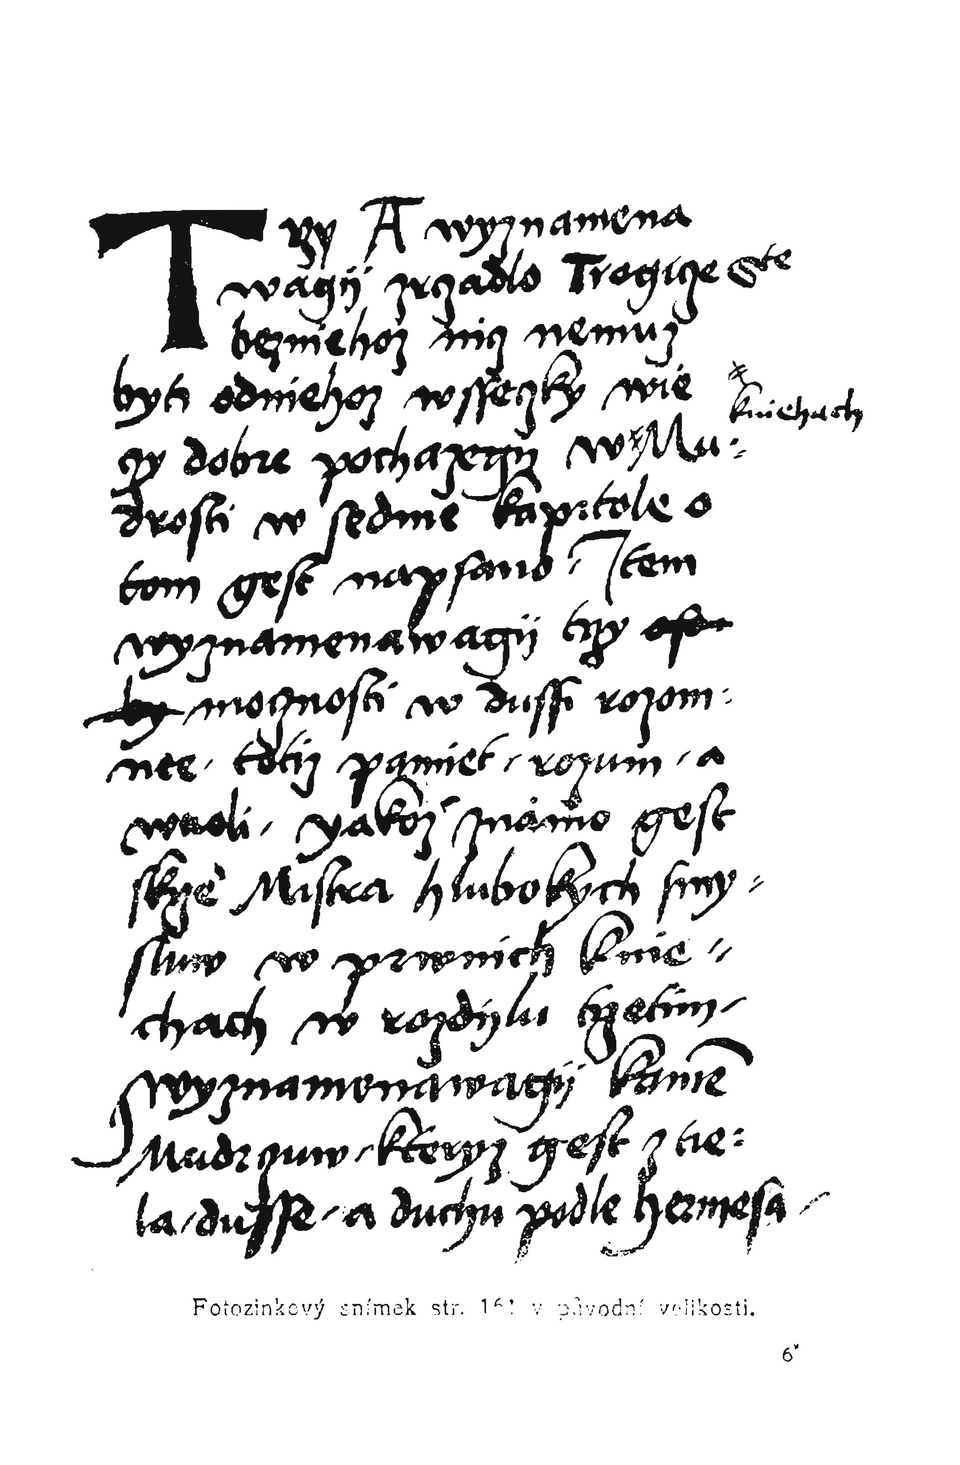 Trzy A wyznamena
wagij zrzadlo Trogicze Ste
bezniehoz nicz nemuz
byti odniehoz wsseczky wie
kniehach
czy dobre pochazegij w Mu:
drosti w sedme kapitole o
tom gest napsano. Item
wyznamenawagij trzy
by mocznosti w dussi rozom:
nee, totiz pamiet, rozum, a
wuoli, yakoz znamo gest
skrze Mistra hlubokych smy=
sluw w prwnich knie=
chach w rozdijlu trzetim,
wyznamenawagij kamē
Mudrczuw, kteryz gest z tie:
la, dusse, a duchu podle hermesa,
Fotozinkový snímek str. 161 v původní velikosti.
6*